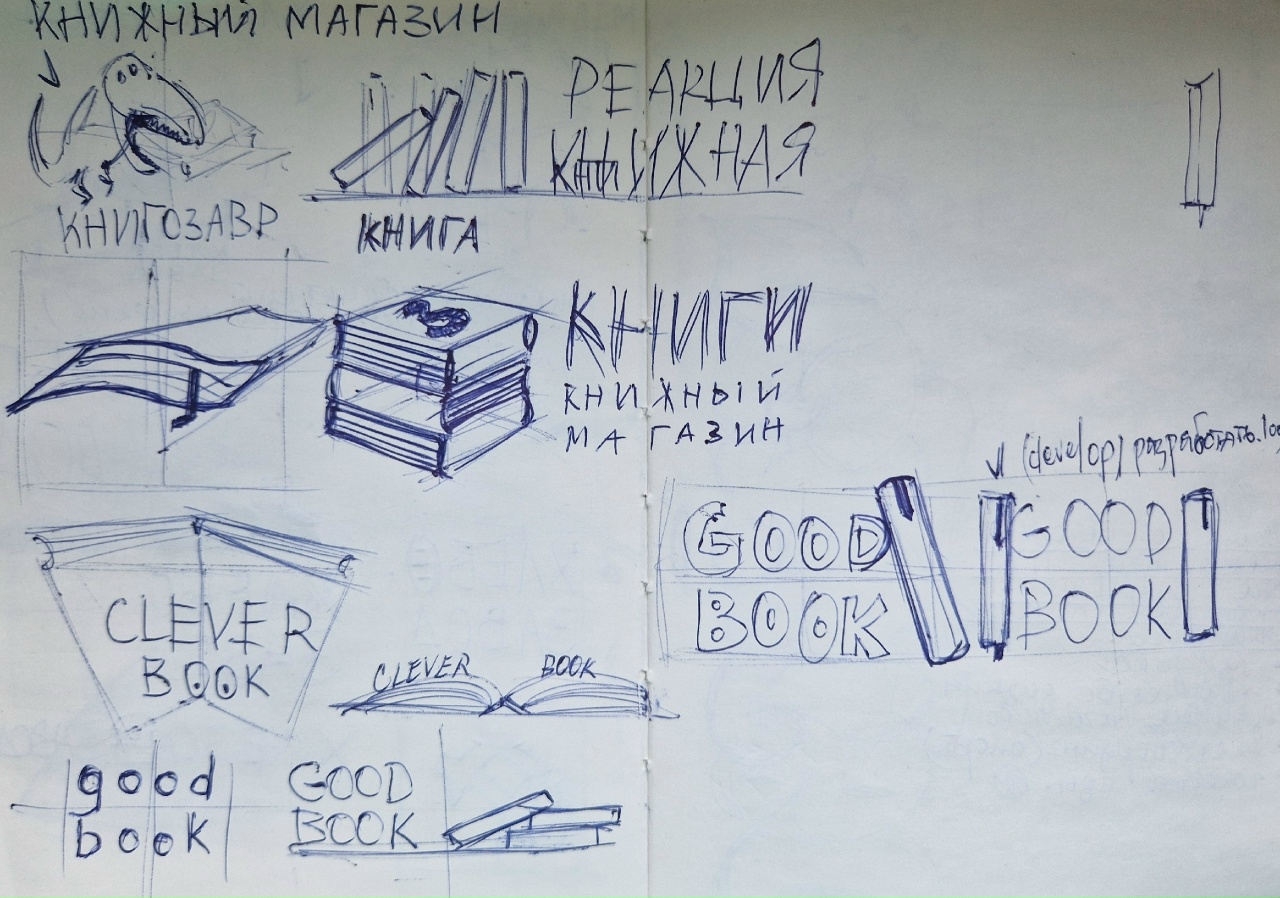 КНИЖНЫЙ МАГАЗИН
КНИГОЗАВР
КНИГА
РЕАКЦИЯ
КНИЖНАЯ
КНИГИ
КНИЖНЫЙ
МАГАЗИН
(develop) разработать.
GOOD
BOOK
GOOD
BOOK
CLEVER
BOOK
CLEVER BOOK
good
book
GOOD
BOOK